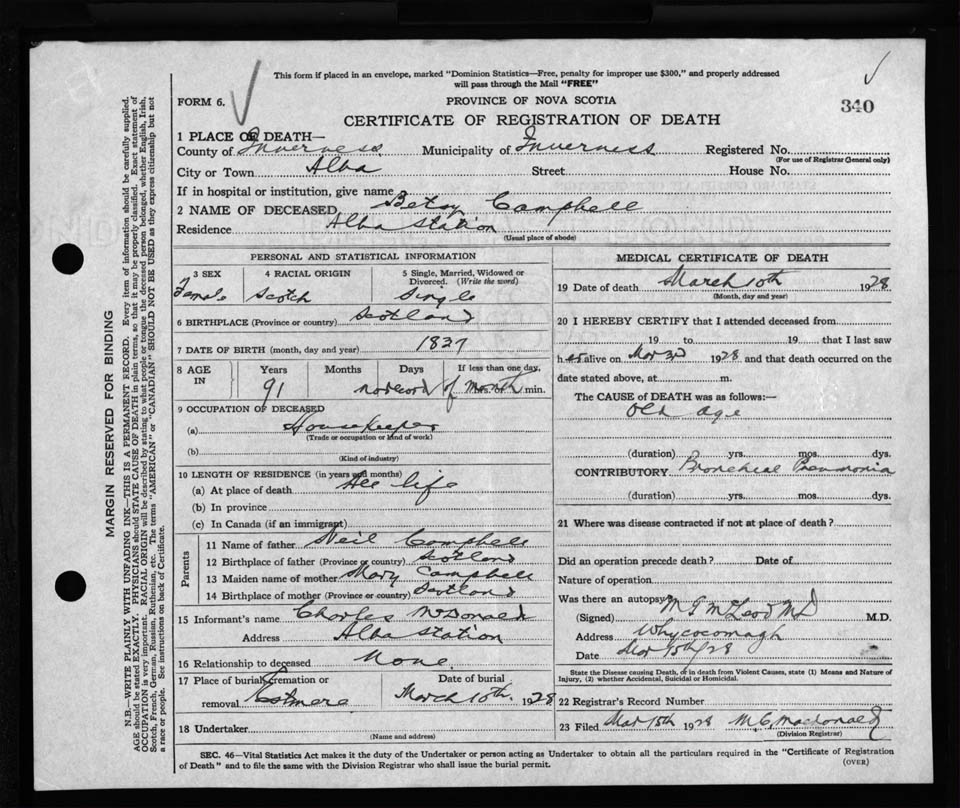 This form if placed in an envelope, marked "Dominion Statistics—Free, penalty for improper use $300," and properly addressed
will pass through the Mail "FREE"
FORM 6.
PROVINCE OF NOVA SCOTIA
340
CERTIFICATE OF REGISTRATION OF DEATH
1 PLACE OF DEATH—
County of Inverness Municipality of Inverness Registered No.
(For use of Registrar General only)
City or Town Alba Street House No.
If in hospital or institution, give name
2 NAME OF DECEASED Betsy Campbell
Residence Alba Station
(Usual place of abode)
PERSONAL AND STATISTICAL INFORMATION
3 SEX 4 RACIAL ORIGIN 5 Single, Married, Widowed or
Divorced. (Write the word)
Female Scotch Single
6 BIRTHPLACE (Province or country) Scotland
7 DATE OF BIRTH (month, day and year) 1837
8 AGE Years Months Days If less than one day,
IN 91 no record of month hrs. or min.
9 OCCUPATION OF DECEASED
(a) Housekeeper
(Trade or occupation or kind of work)
(b)
(Kind of industry)
10 LENGTH OF RESIDENCE (in years and months)
(a) At place of death All life
(b) In province
(c) In Canada (if an immigrant)
Parents
11 Name of father Neil Campbell
12 Birthplace of father (Province or country) Scotland
13 Maiden name of mother Mary Campbell
14 Birthplace of mother (Province or country) Scotland
15 Informant's name Charles McDonald
Address Alba Station
16 Relationship to deceased None
17 Place of burial, cremation or Date of burial
removal March 18th 1928
18 Undertaker
(Name and address)
MEDICAL CERTIFICATE OF DEATH
19 Date of death March 10th 1928
(Month, day and year)
20 I HEREBY CERTIFY that I attended deceased from
19 to 19 that I last saw
her alive on Mar 3rd 1928 and that death occurred on the
date stated above, at m.
The CAUSE of DEATH was as follows:—
Old age
(duration) yrs. mos. dys.
CONTRIBUTORY Bronchial Pneumonia
(duration) yrs. mos. dys.
21 Where was disease contracted if not at place of death?
Did an operation precede death? Date of
Nature of operation
Was there an autopsy
(Signed) McLeod MD M.D.
Address Whycocomagh
Date Mar 15th/28
State the Disease causing Death, or in death from Violent Causes, state (1) Means and Nature of
Injury, (2) whether Accidental, Suicidal or Homicidal.
22 Registrar's Record Number
23 Filed Mar 15th 1928 M. C. Macdonald
(Division Registrar)
SEC. 46—Vital Statistics Act makes it the duty of the Undertaker or person acting as Undertaker to obtain all the particulars required in the "Certificate of Registration
of Death" and to file the same with the Division Registrar who shall issue the burial permit.
(OVER)
MARGIN RESERVED FOR BINDING
N.B.—WRITE PLAINLY WITH UNFADING INK—THIS IS A PERMANENT RECORD. Every item of information should be carefully supplied.
AGE should be stated EXACTLY. PHYSICIANS should STATE CAUSE OF DEATH in plain terms, so that it may be properly classified. Exact statement of
OCCUPATION is very important. RACIAL ORIGIN will be described by stating to what people or tongue the deceased person belonged, whether English, Irish,
Scotch, French, German, Russian, Ruthenian, etc. The terms "AMERICAN" or "CANADIAN" SHOULD NOT BE USED as they express citizenship but not
a race or people. See instructions on back of Certificate.